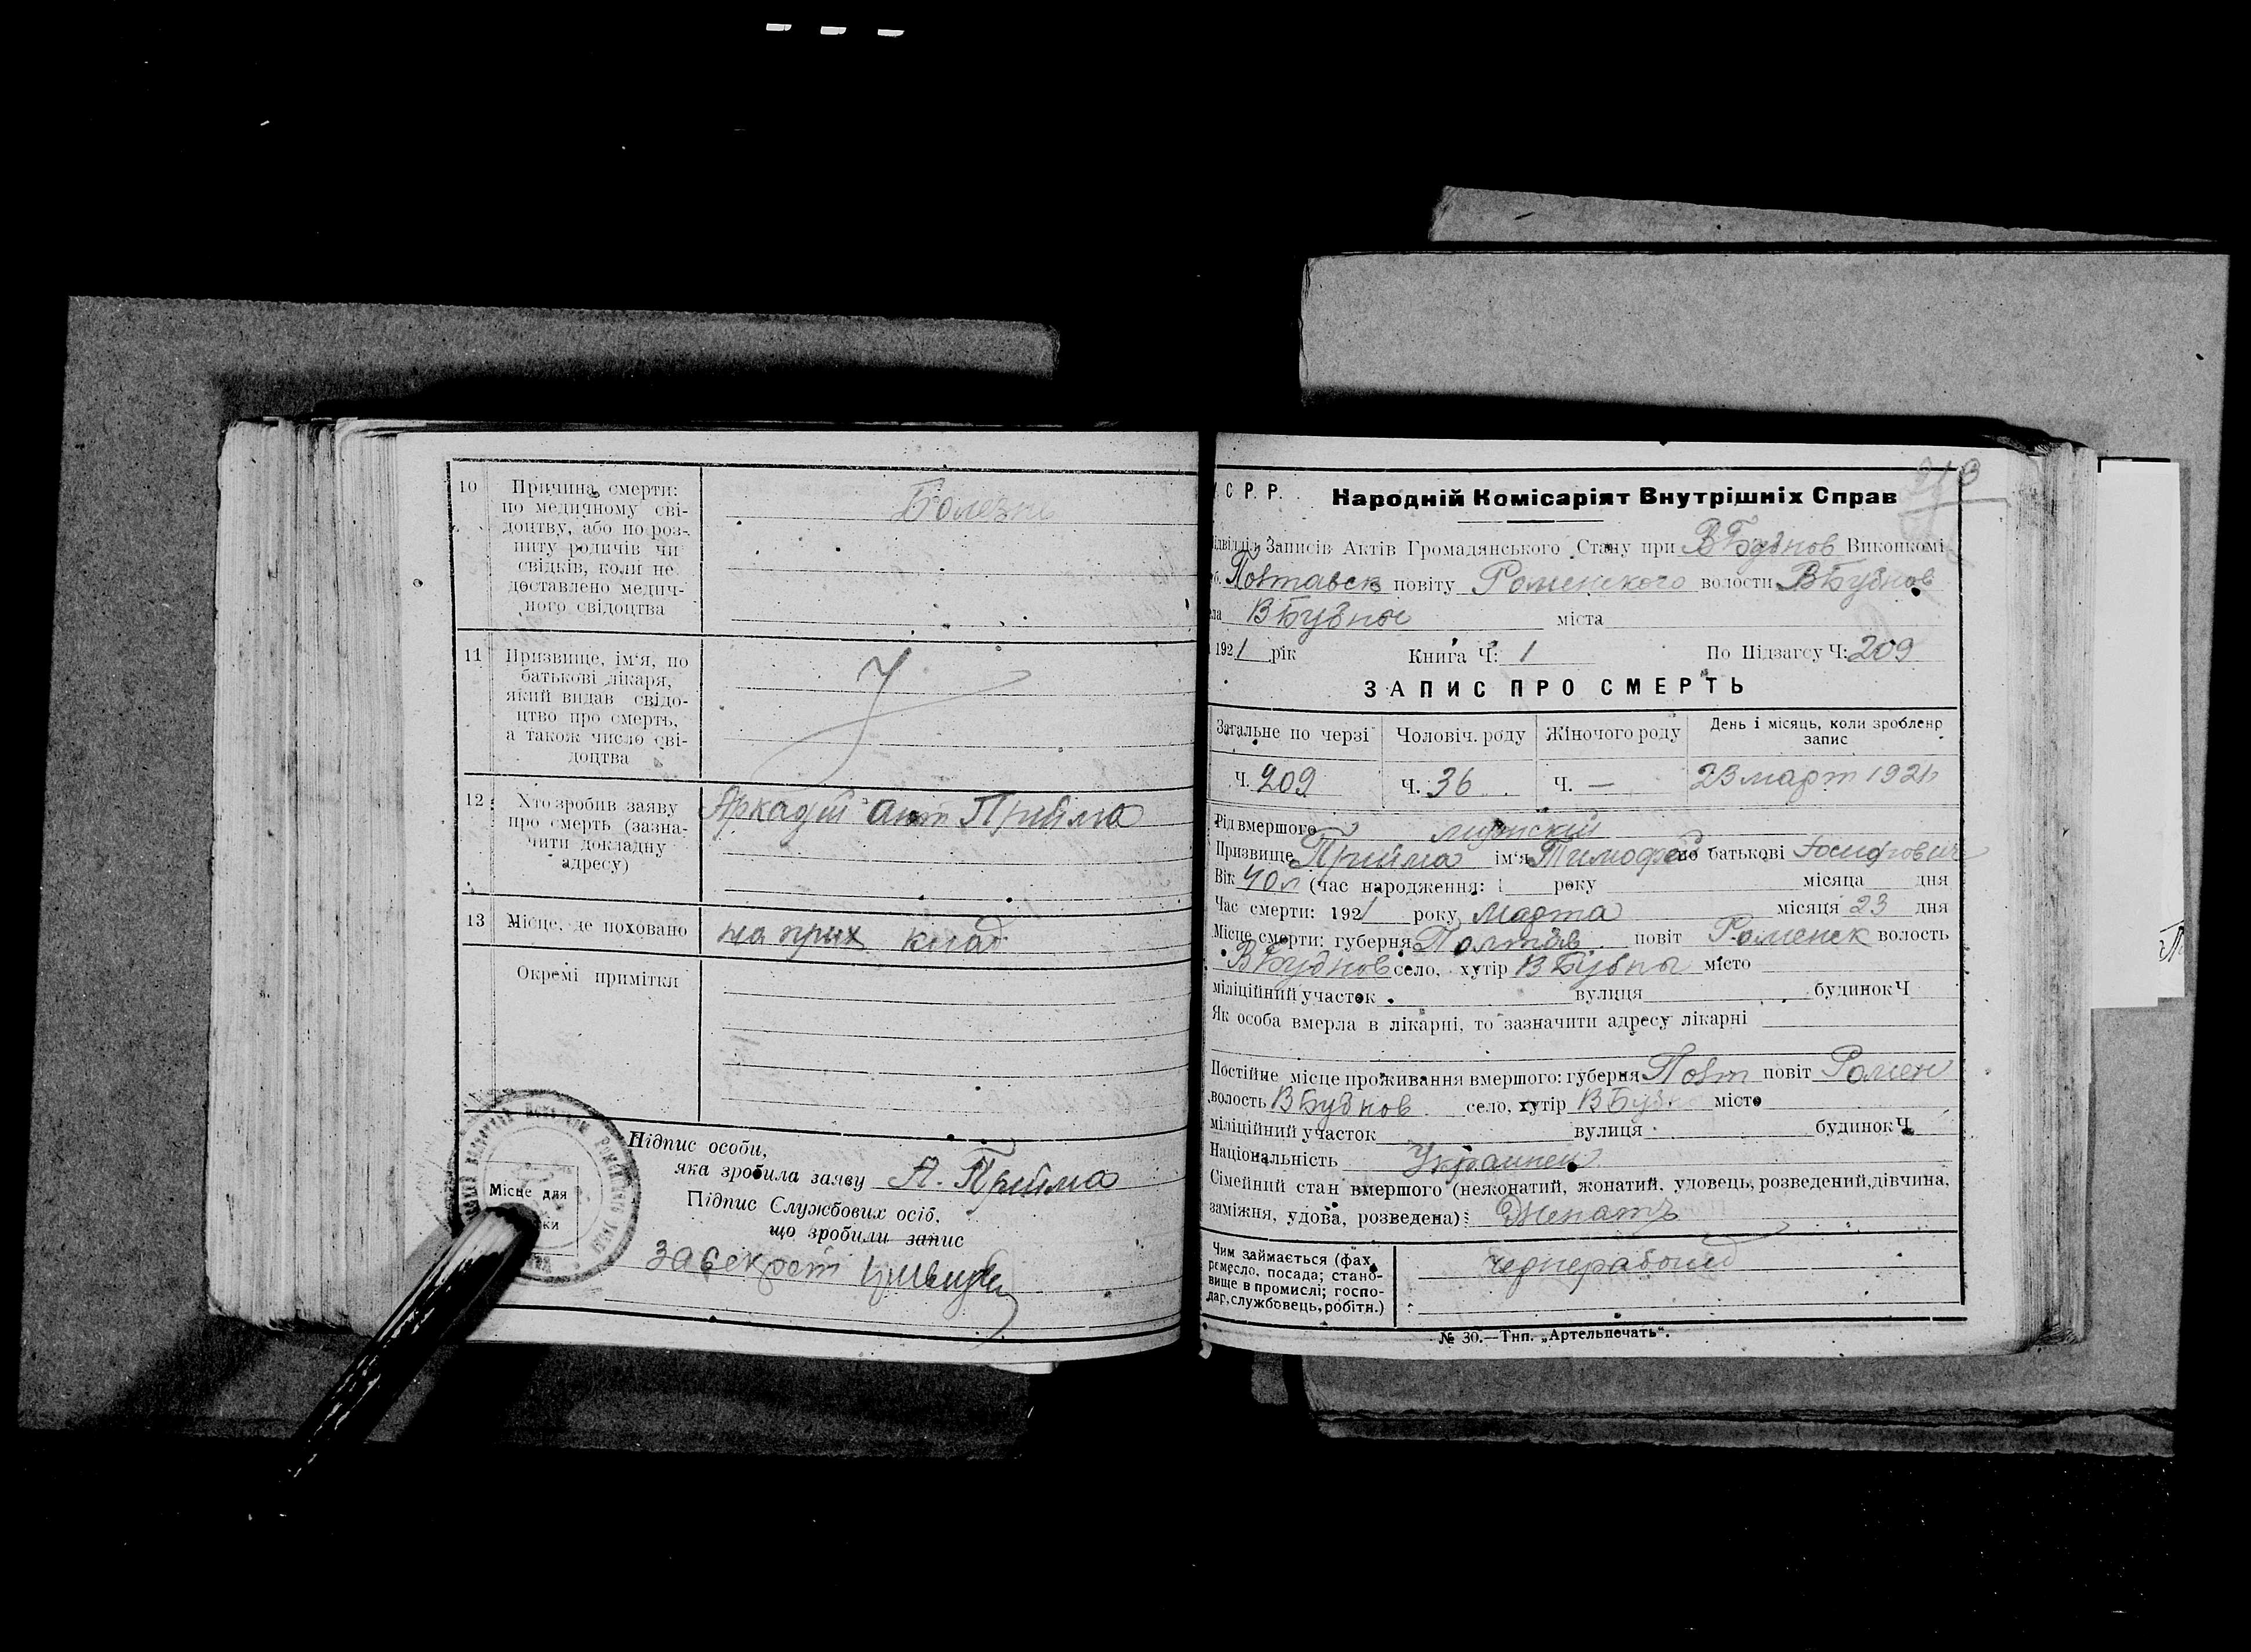 10 Причина смерти:
по медичному сві-
доцтву, або по роз-
питу родичів чи
свідків, коли не
доставлено медич-
ного свідоцтва
Болезнь
11 Призвище, ім'я, по
батькові лікаря,
який видав свідо-
цтво про смерть,
а також число сві-
доцтва
12 Хто зробив заяву
про смерть (зазна-
чити докладну
адресу)
Аркадий Ант Прийма
13 Місце, де поховано
на прих клад
Окремі примітки
Місце для
ки
Підпис особи,
яка зробила заяву А. Прийма
Підпис Службових осіб,
що зробили запис
За секрет
213
С. Р. Р. Народній Комісаріят Внутрішніх Справ
Підвідділ Записів Актів Громадянського Стану при ВБубнов Виконкомі
Полтавск повіту Роменского волости ВБубнов
ВБубны міста
1921 рік Книга Ч: 1 По Підзагсу Ч: 209
ЗАПИС ПРО СМЕРТЬ
Загальне по черзі Чоловіч. роду Жіночого роду День і місяць, коли зроблено
запис
Ч. 209 Ч. 36 Ч. — 23 март 1921
Рід вмершого мужский
Призвище Прийма ім'я Тимофей по батькові Іосифович
Вік 40 л (час народження: 1 року місяца дня
Час смерти: 1921 року Марта місяця 23 дня
Місце смерти: губерня Полтав повіт Роменск волость
ВБубнов село, хутір ВБубны місто
міліційний участок вулиця будинок Ч
Як особа вмерла в лікарні, то зазначити адресу лікарні
Постійне місце проживання вмершого: губерня Полт повіт Ромен
волость ВБубнов село, хутір ВБуб місто
міліційний участок вулиця будинок Ч
Національність Украинец
Сімейний стан вмершого (нежонатий, жонатий, удовець, розведений, дівчина,
заміжня, удова, розведена): Женатъ
Чим займається (фах,
ремесло, посада; стано-
вище в промислі; госпо-
дар, службовець, робітн.)
чернерабочий
№ 30.—Тип. „Артельпечать".